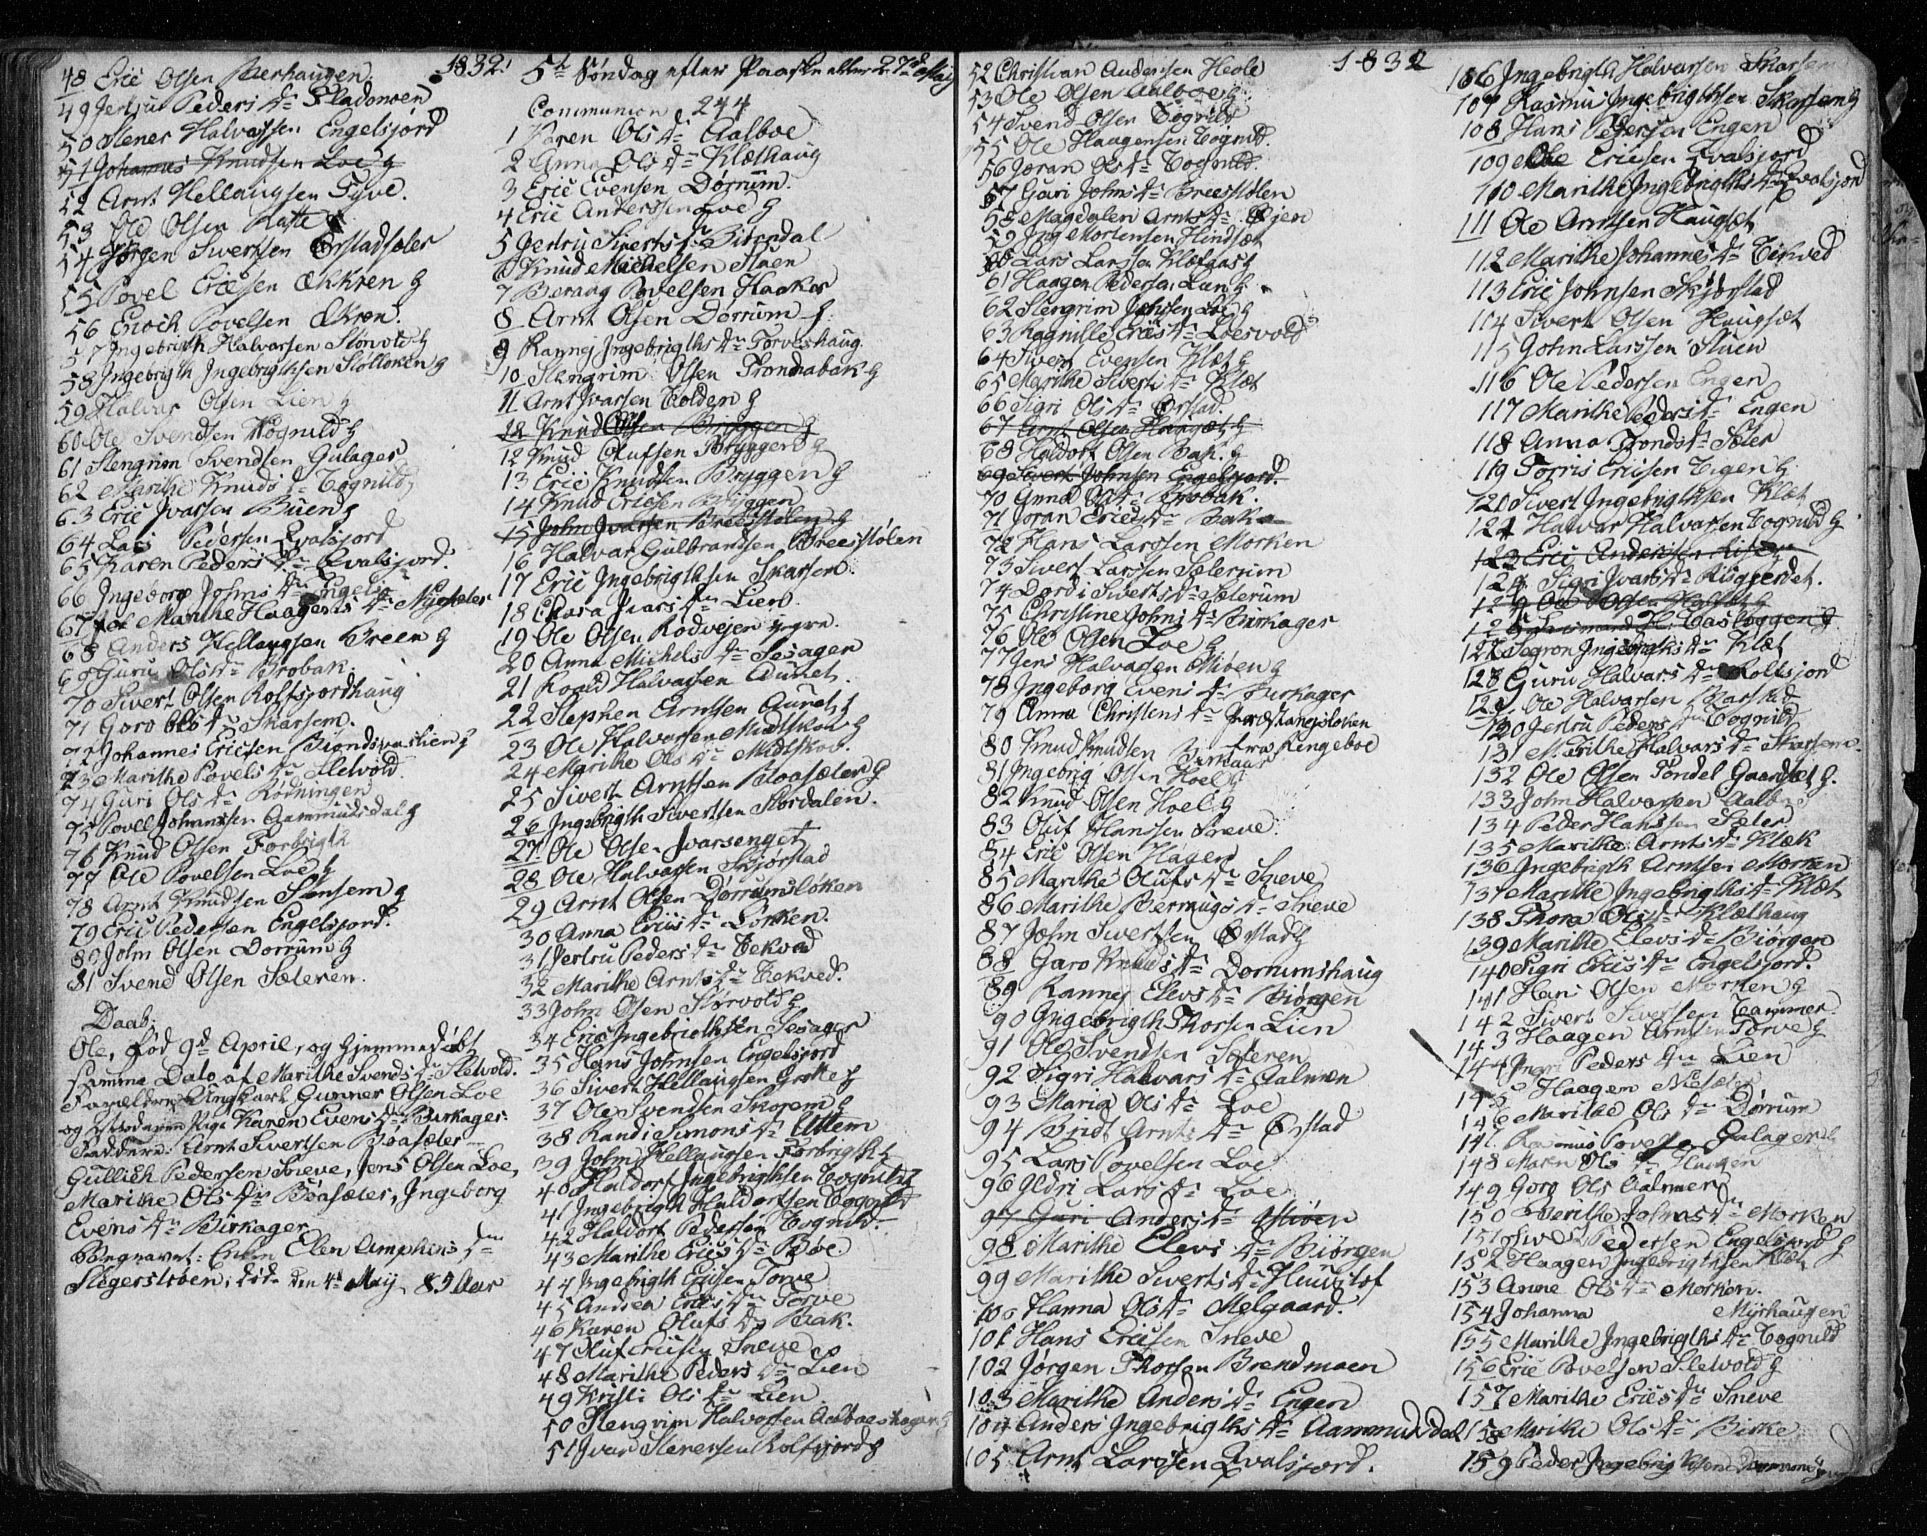 1832.
48 Eric Olsen Berhaugen
49 Jertru Peders Dr Fladomoen
50 Stener Halvorsen Engelsjord
51 Johannes Knudsen Loe g
52 Arnt Hellaugsen Tyve.
53 Ole Olsen
54 Jørgen Sivertsen Ørstadsæter
55 Povel Ericsen Ækren g
56 Enoch Povelsen Ækren.
57 Ingebrigth Halvorsen Slørvold g
58 Ingebrigth Ingebrigthsen g
59 Halvor Olsen Lien g
60 Ole Svendsen Tognild g
61 Stengrim Svendsen Gulager
62 Marithe Knuds Dr Tognild
63 Eric Ivarsen Buen g
64 Lars Pedersen Qvalsjord
65 Karen Peders Dr Qvalsjord.
66 Ingeborg Johns Dr
67 Marithe Haagens Dr Nysæter
68 Anders Hellaugsen Breen g
69 Guru Ols Dr Brobak.
70 Sivert Olsen Rolfsjordhaug
71 Goro Ols Dr Skarsem.
72 Johannes Ericsen g
73 Marithe Povels Dr Sletvold.
74 Guri Ols Dr Rønningen
75 Povel Johanssen Aammundsdal g
76 Knud Olsen Forbrigth
77 Ole Povelsen Loe g
78 Arnt Knudsen g
79 Eric Pedersen Engelsjord.
80 John Olsen Dørrum g
81 Svend Olsen Sæteren.
Daab.
Ole, fød 9d April, og hjemmedøbt
samme Dato af Marithe Svends Dr Sletvold.
Forældre: Ungkarl Gunner Olsen Loe
og Pige Karen Evens Dr Birkager.
Faddere: Arnt Sivertsen Boasæter
Gullich Pedersen Sneve, Jens Olsen Loe,
Marithe Ols Dr Boasæter, Ingeborg
Evens Dr Birkager
Begravet: Enken Elen Amphins Dr
Slegersløben, død den 4d May, 85 Aar
5te Søndag efter Paaske eller 27d May
Communion 244
1 Karen Ols Dr Aalboe
2 Anna Ols Dr Klæthaug
3 Eric Evensen Dørrum.
4 Eric Anderssen Loe g
5 Jertru Siverts Dr Biørndal
6 Knud Michelsen Staen
7 Beraug Povelsen Haaker
8 Arnt Olsen Dørrum g.
9 Rannej Ingebrigths Dr Torveshaug.
10 Stengrim Olsen g
11 Arnt Ivarsen Holden g
12 Knud Olsen Bryggen g
12 Knud Olufsen Bryggen g
13 Eric Knudsen Bryggen g
14 Knud Ericsen Bryggen
15 John Ivarsen Breesstølen g
16 Halvor Gulbrandsen Breesstølen
17 Eric Ingebrigthsen Skarsem.
18 Chara Ivars Dr Lien.
19 Ole Olsen Rodvejen
20 Anne Michels Dr Sesagen
21 Roald Halvorsen Aunet.
22 Stephen Arntsen Aunet g
23 Ole Halvorsen Midtskov g
24 Marithe Ols Dr Midtskov.
25 Sivert Arntsen Boasæter g
26 Ingebrigth Sivertsen Stordalen.
27 Ole Olsen Ivarsenget
28 Ole Halvorsen Skjørstad
29 Arnt Olsen Dørrumsløken
30 Anna Erics Dr
31 Jertru Peders Dr Tekved
32 Marithe Arnts Dr Tekved.
33 John Olsen Slørvold g
34 Eric Ingebrigthsen Sesager
35 Hans Johnsen Engelsjord
36 Sivert Hellaugsen Grøtte g
37 Ole Svendsen Skorem g
38 Randi Simons Dr
39 John Hellaugsen Forbrigth
40 Haldor Ingebrigthsen Tognild
41 Ingebrigth Haldorsen Tognild
42 Haldor Pedersen Tognild.
43 Marithe Erics Dr Bøe.
44 Ingebrigth Ericsen Torve
45 Andrea Erics Dr Torve
46 Karen Olufs Dr Bak.
47 Oluf Ericsen Sneve
48 Marithe Peders Dr Lien
49 Kristi Ols Dr Lien
50 Stengrim Halvorsen Aalboeshagen g
51 Ivar Stenersen Rolfsjord g
1832
52 Christian Andersen Heole
53 Ole Olsen Aalboe g
54 Svend Olsen Tognild
55 Ole Haagensen Tognild.
56 Joran Ols Dr Tognild.
57 Guri Johns Dr Breesstølen
58 Magdalen Arnts Dr
59 Ing Mortensen Hindsæt
60 Lars Larsen
61 Haagen Pedersen Lien g.
62 Stengrim Johnsen Loe g
63 Ragnille Erics Dr Loesvold
64 Sivert Evensen Klæt g
65 Marithe Siverts Dr Klæt
66 Sigri Ols Dr Ørstad.
67 Olsen Haugset g
68 Haldort Olsen Bak. g
69 Sivert Johnsen Engelsjord.
70 Anne Ols Dr Brobak.
71 Joran Erics Dr Bak
72 Hans Larssen Morken
73 Sivert Larssen Sæterum
74 Dordi Siverts Dr Sæterum
75 Christine Johns Dr Birkager
76 Ole Olsen Loe g
77 Jens Halvorsen Miøen g
78 Ingeborg Evens Dr Birkager
79 Anna Christens Dr
80 Knud Knudsen Birkager fra Ringeboe
81 Ingebrig Olsen Hoel g
82 Knud Olsen Hoel g
83 Oluf Hanssen Sneve.
84 Eric Olsen Hagen
85 Marithe Olufs Dr Sneve
86 Marithe Beraugs Dr Sneve
87 John Sivertsen Ørstad g
88 Goro Knuds Dr Dørrumshaug
89 Rannej Elevs Dr Biørgen
90 Ingebrigth Thorsen Lien
91 Ole Svendsen Sæteren
92 Sigri Halvors Dr Aalmen
93 Maria Ols Dr Loe
94 Brit Arnts Dr Ørstad
95 Lars Povelsen Loe
96 Ildri Lars Dr Loe
97 Guri Anders Dr
98 Marithe Elevs Dr Biørgen
99 Marithe Siverts Dr
100 Hanna Ols Dr Melgaard.
101 Hans Ericsen Sneve
102 Jørgen Thorsen Brendmoen
103 Marithe Anders Dr Engen
104 Anders Ingebrigths Dr Aammundsdal
105 Arnt Larssen Qvalsjord.
106 Ingebrigth Halvorsen Skarsem
107 Rasmus Ingebrigthsen Skarsem g
108 Hans Pedersen Engen
109 Ole Ericsen Qvalsjord
110 Marithe Ingebrigths Dr Qvalsjord
111 Ole Arntsen Haugset
112 Marithe Johannes Dr Tekved
113 Eric Johnsen Skjørstad
114 Sivert Olsen Haugset
115 John Larssen Stuen
116 Ole Pedersen Engen
117 Marithe Peders Dr Engen
118 Anna Tronds Dr Sæter
119 Torris Ericsen Teigen g
120 Sivert Ingebrigthsen Klæt
121 Halvor Halvorsen Tognild g
123 Eric Anderssen
124 Sigri Ivars Dr Risgjerdet.
Ole Olsen
126 g
127 Segron Ingebrigths Dr Klæt
128 Guru Halvors Dr Rolfsjord
129 Ole Halvorsen Barstad
130 Jertru Peders Dr Tognild
131 Marithe Halvors Dr Skarsem.
132 Ole Olsen Tondel g.
133 John Halvorsen Aalboe
134 Peder Hanssen Sæter
135 Marithe Arnts Dr Klæt
136 Ingebrigth Arntsen Morken
137 Marithe Ingebrigths Dr Klæt
138 Thora Ols Dr Klæthaug
139 Marithe Elevs Dr Biørgen
140 Sigri Erics Dr Engelsjord.
141 Hans Olsen Morken g
142 Sivert Sivertsen
143 Haagen Arntsen Torve g
144 Ingri Peders Dr Lien
145 Haagen
146 Marithe Ols Dr Dørrum
147 Rasmus Povelsen Gulager
148 Maren Ols Dr Haagen
149 Goro Ols Aalmen
150 Marithe Johns Dr Morken
151 Sivert Pedersen Engelsjord g
152 Haagen Ingebrigthsen Klæt
153 Anne Ols Dr Morken.
154 Johanna Myrhaugen
155 Marithe Ingebrigths Dr Tognild
156 Eric Povelsen Sletvold g
157 Marithe Erics Dr Sneve
158 Marithe Ols Dr Birke
159 Peder Ingebrigthsen